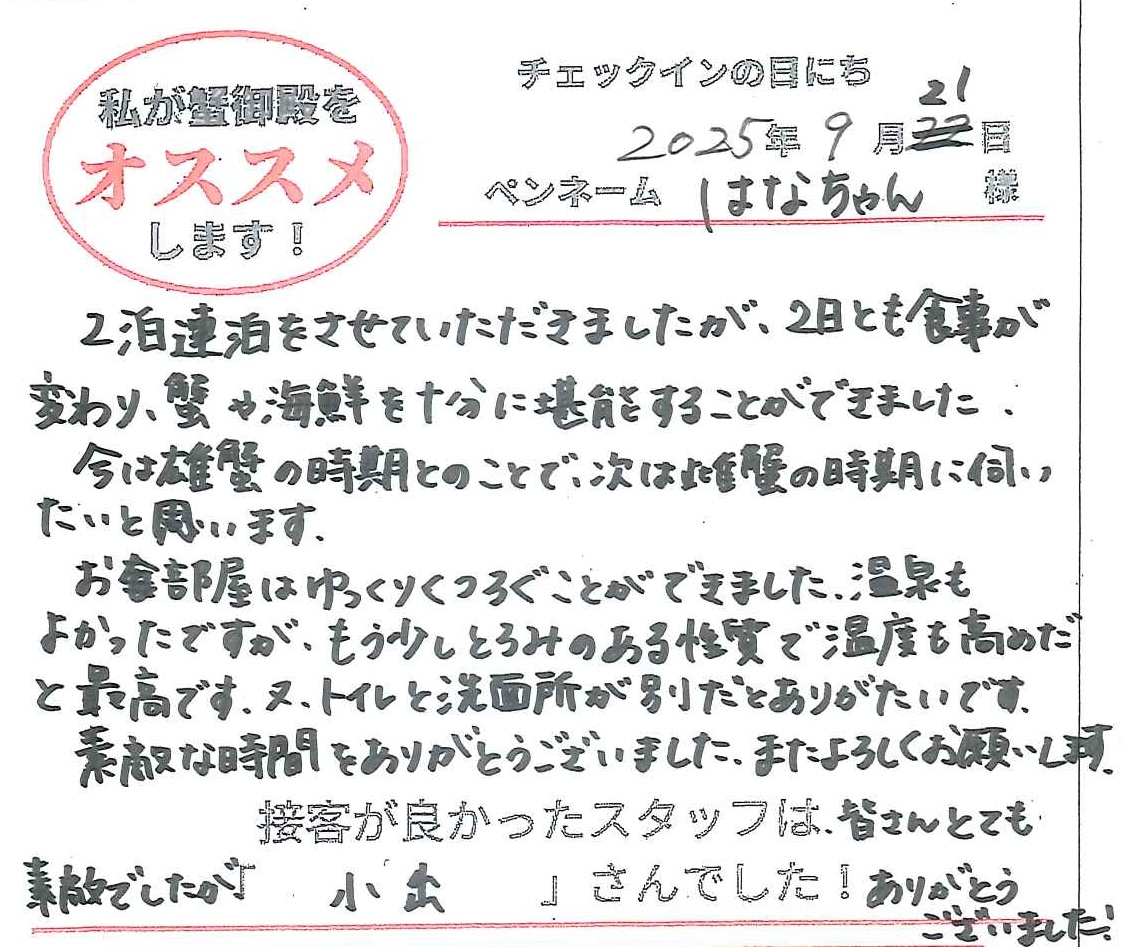 私が蟹御殿を
オススメ
します！
チェックインの日にち
21
2025年 9月22日
ペンネーム はなちゃん 様
2泊連泊をさせていただきましたが、2日とも食事が
変わり、蟹や海鮮を十分に堪能とすることができました。
今は雄蟹の時期とのことで、次は雌蟹の時期に伺い
たいと思います。
お部屋はゆっくりくつろぐことができました。温泉も
よかったですが、もう少しとろみのある性質で温度も高めだ
と最高です。又、トイレと洗面所が別だとありがたいです。
素敵な時間をありがとうございました。またよろしくお願いします。
接客が良かったスタッフは、皆さんとても
素敵でしたが「 小出 」さんでした！ありがとう
ございました！